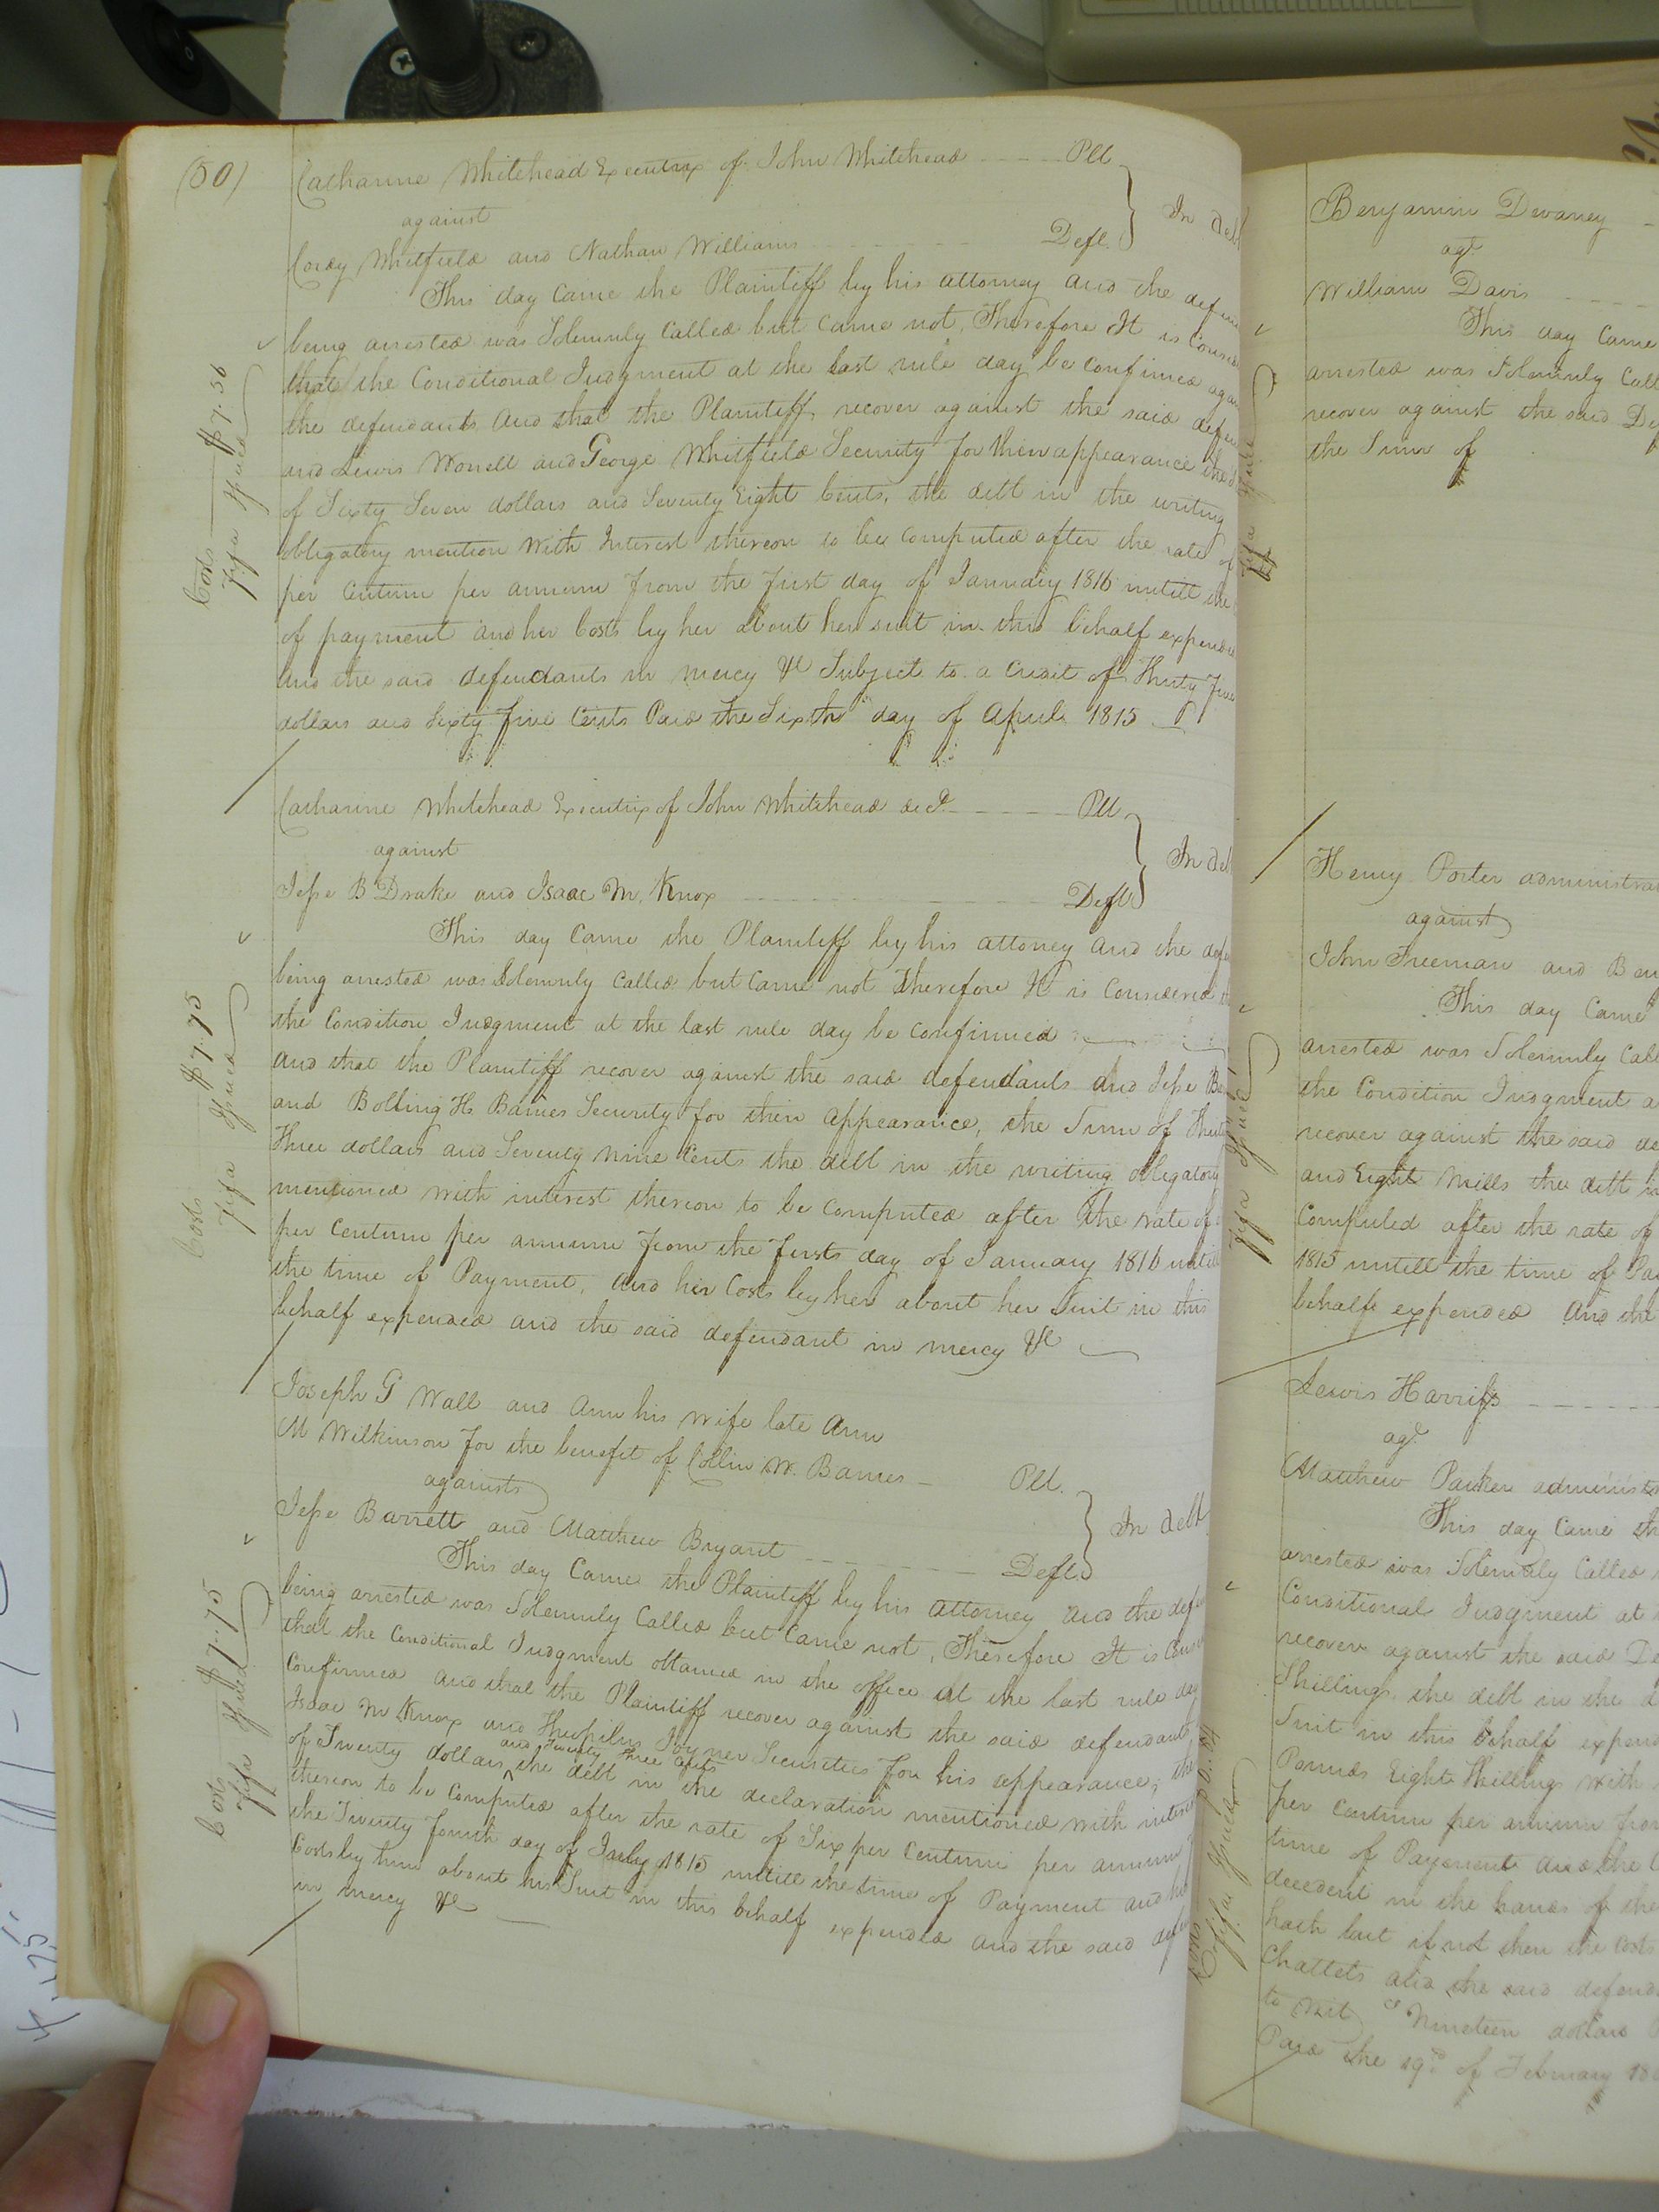 (50)
Catharine Whitehead Executrix of John Whitehead Plt
against
In debt
Cordy Whitfield and Nathan Williams Deft.
This day Came the Plaintiff by his attorney and the defen
being arrested was Solemnly Called but Came not, Therefore It is Consid
that the Conditional Judgment at the last rule day be confirmed again
the defendants And that the Plaintiff recover against the said defen
and Lewis Worrell and George Whitfield Security for their appearance the
of Sixty Seven dollars and Seventy Eight Cents, the debt in the writing
obligatory mention With Interest thereon to be Computed after the rate of
per Centum per annum from the first day of January 1816 untill the
of payment and her Costs by her about her suit in this behalf expended
And the said defendants in mercy &c Subject to a Credit of Thirty five
dollars and Sixty five Cents Paid the Sixth day of April 1815
Costs $7.56
Fifa Issued
Catharine Whitehead Executrix of John Whitehead decd. Plt
against
In deb
Jesse B Drake and Isaac M. Knox Defts
This day Came the Plaintiff by his attorney and the defe
being arrested was Solemnly Called but Came not Therefore It is Considered
the Condition Judgment at the last rule day be confirmed
And that the Plaintiff recover against the said defendants And Jesse
and Bolling H. Barnes Security for their appearance, the Sum of Thirty
Three dollars and Seventy nine Cents the debt in the writing obligatory
mentioned with interest thereon to be Computed after the rate of
per Centum per annum from the firsts day of January 1816 untill
the time of Payment, And her Costs by her about her Suit in this
behalf expended and the said defendant in mercy &c
Costs $7.75
Fifa Issued
Joseph G Wall and Ann his wife late Ann
M Wilkinson for the benefit of Collin W. Barnes Plt.
against
In debt
Jesse Barrett and Matthew Bryant Defts
This day Came the Plaintiff by his Attorney And the defe
being arrested was Solemnly Called but Came not, Therefore It is Consi
that the Conditional Judgment obtained in the office at the last rule day
Confirmed And that the Plaintiff recover against the said defendant
Isaac M Knox and Theophilus Joyner Securities for his appearance, the
and Twenty three Cents
of Twenty dollars ^ the debt in the declaration mentioned with interest
thereon to be Computed after the rate of Six per Centum per annum
the Twenty fourth day of July 1815 untill the time of Payment and his
Costs by him about his Suit in this behalf expended And the said defen
in mercy &c
Costs $7.75
Fifa Issued
Benjamin Devaney
agt.
William Davis
This day Came
arrested was Solemnly Call
recover against the said De
the Sum of
Henry Porter administra
against
John Freeman and Ben
This day Came
arrested was Solemnly Call
the Condition Judgment a
recover against the said de
and Eight Mills the debt in
Computed after the rate of
1815 untill the time of Pa
behalfe expended And the
Fifa Issued
Lewis Harriss
agt.
Matthew Parker administr
This day Came th
arrested was Solemnly Called
Conditional Judgment at
recover against the said De
Shillings, the debt in the d
Suit in this behalf expend
Pounds Eight Shillings with
per Centum per annum from
time of Payment And the C
decedent in the hands of the
hath but if not then the Costs
Chattels And the said defend
to wit Nineteen dollars
Paid the 19th of February 18
Costs
Fifa Issued